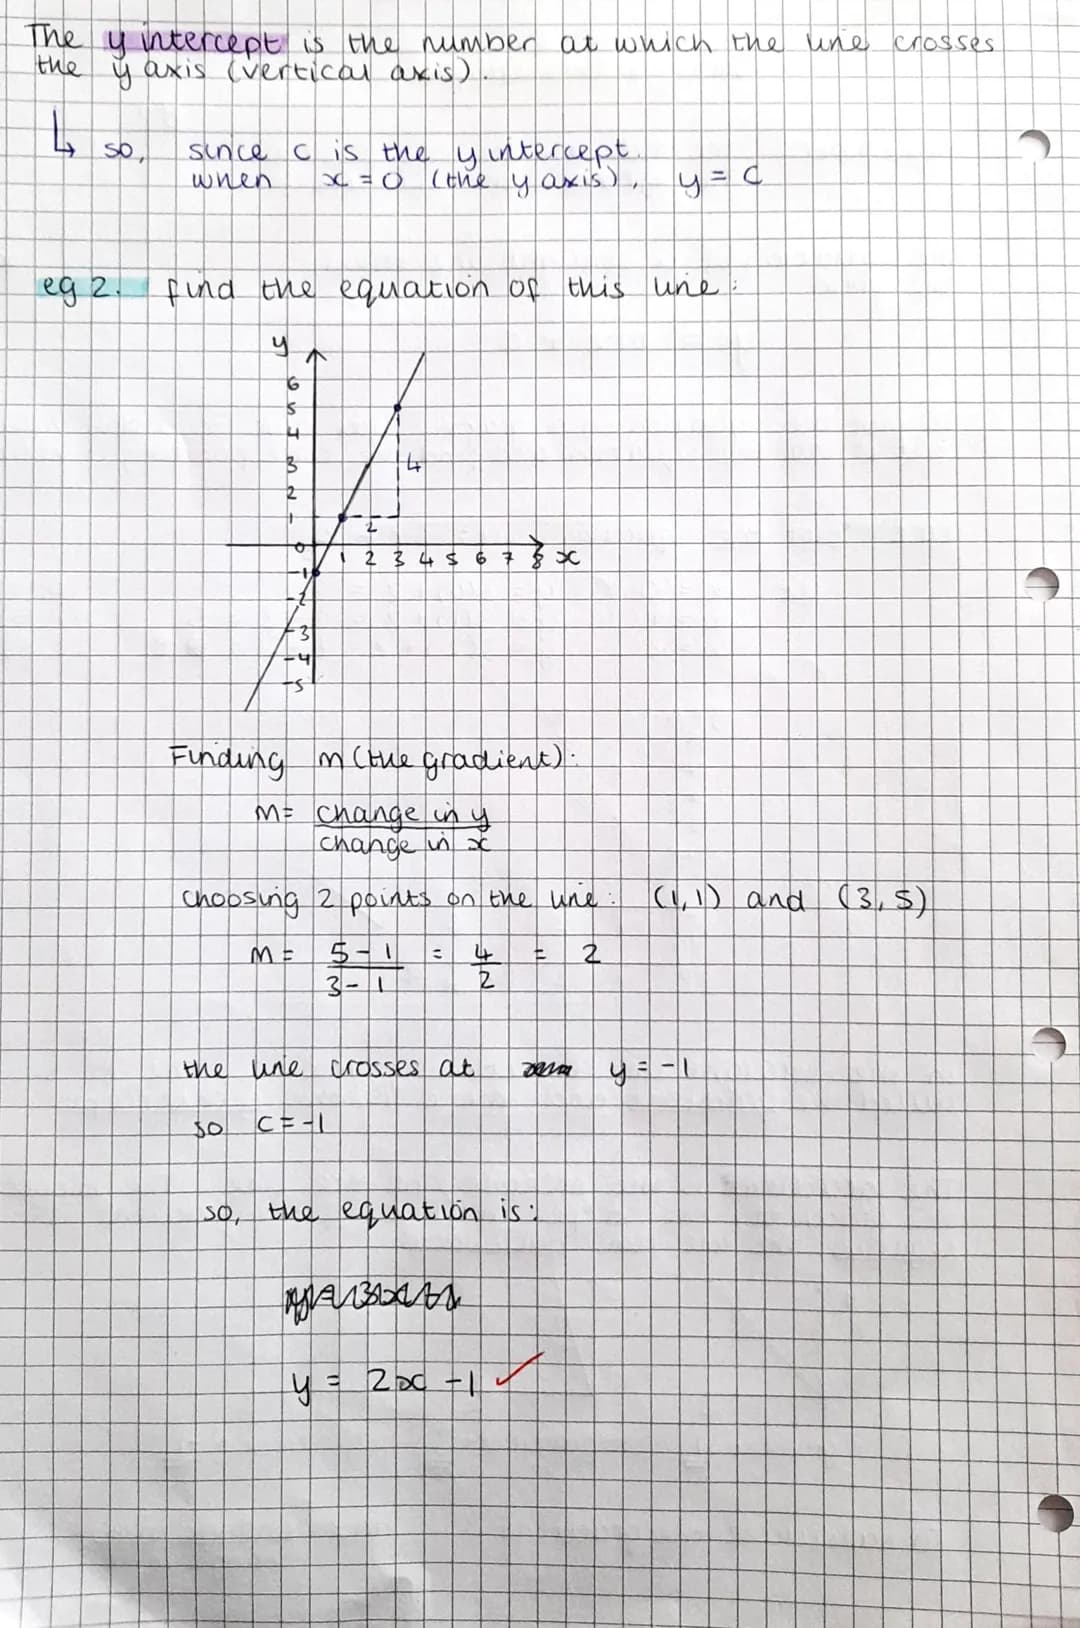 The y intercept is the number at which the line crosses
the y axis (vertical axis).
↳ so, since c is the y intercept.
when x = 0 (the y axis), y = c
eg 2. find the equation of this line:
y
6
5
4
3
4
2
1
2
0 1 2 3 4 5 6 7 8 x
-1
-2
-3
-4
-5
Finding m (the gradient):
m= change in y
change in x
choosing 2 points on the line: (1,1) and (3,5)
m = 5-1 = 4 = 2
3-1 2
the line crosses at y = -1
so c = -1
so, the equation is:
y = 2x -1 ✓